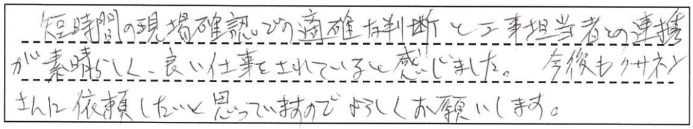 短時間の現場確認での適確な判断と工事担当者との連携
が素晴らしく、良い仕事をされていると感じました。今後もクサネン
さんに依頼したいと思っていますのでよろしくお願いします。